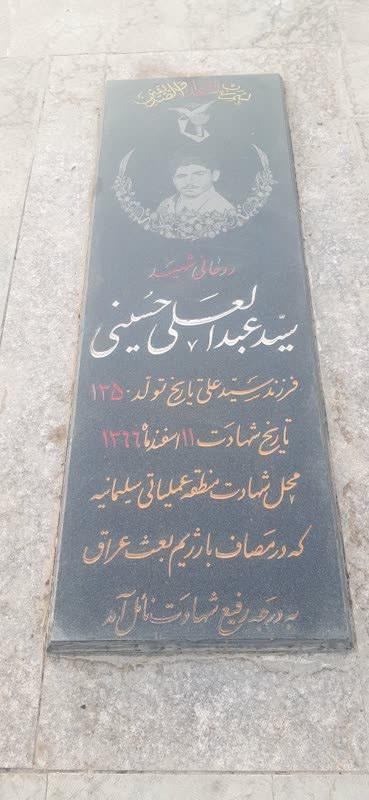 روحانی شهید
سیّد عبدالعلی حسینی
فرزند سیّد علی تاریخ تولّد ۱۳۵۰
تاریخ شهادت ۱۱ اسفند ماه ۱۳۶۶
محل شهادت منطقه عملیاتی سلیمانیه
که در مصاف با رژیم بعث عراق
به درجه رفیع شهادت نائل آمد